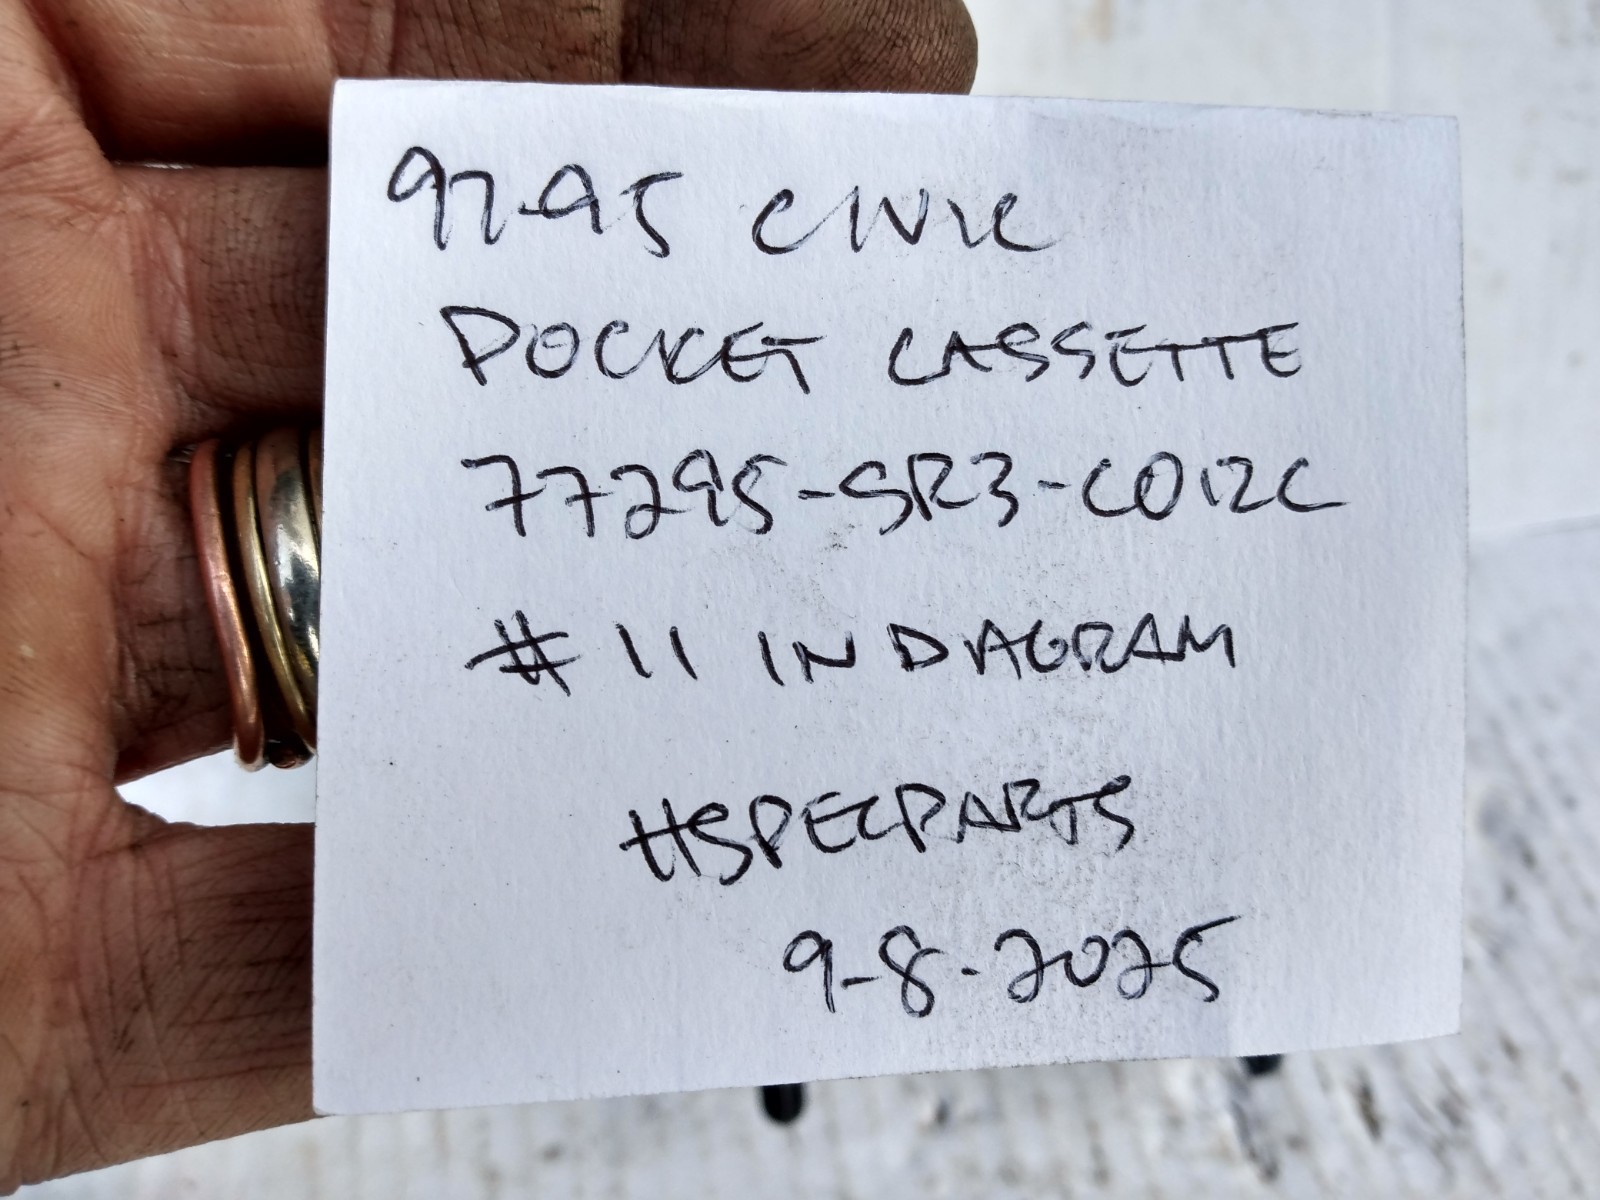 92-95 CIVIC
POCKET CASSETTE
77295-SR3-C01ZC
# 11 IN DIAGRAM
HSPECPARTS
9-8-2025